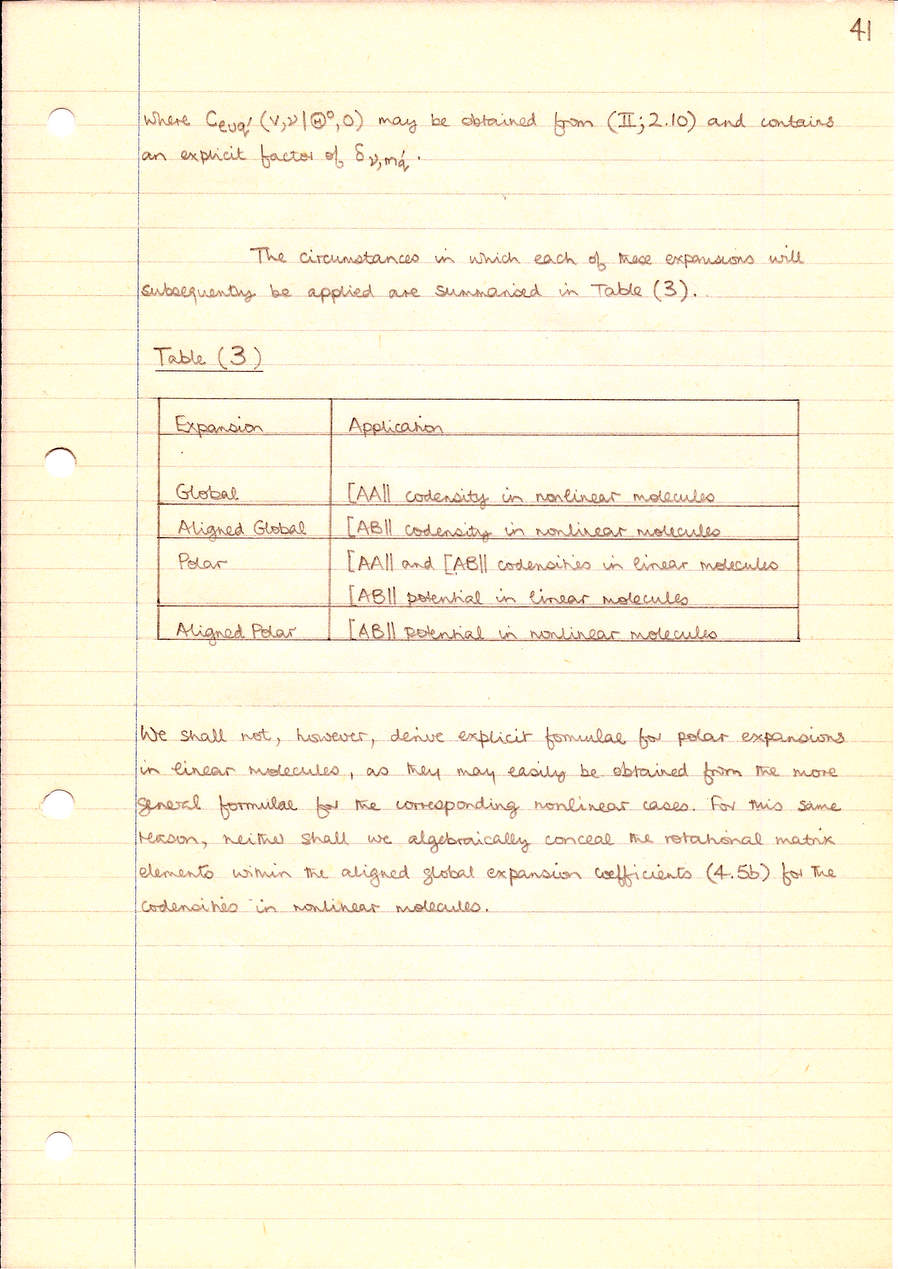 41
where C_{euq'} (V,ν|Θ°,0) may be obtained from (II;2.10) and contains
an explicit factor of δ_{ν,m_q'}.
The circumstances in which each of these expansions will
subsequently be applied are summarised in Table (3).
Table (3)
Expansion Application
Global [AA|| codensity in nonlinear molecules
Aligned Global [AB|| codensity in nonlinear molecules
Polar [AA|| and [AB|| codensities in linear molecules
[AB|| potential in linear molecules
Aligned Polar [AB|| potential in nonlinear molecules
We shall not, however, derive explicit formulae for polar expansions
in linear molecules, as they may easily be obtained from the more
general formulae for the corresponding nonlinear cases. For this same
reason, neither shall we algebraically conceal the rotational matrix
elements within the aligned global expansion coefficients (4.5b) for the
codensities in nonlinear molecules.